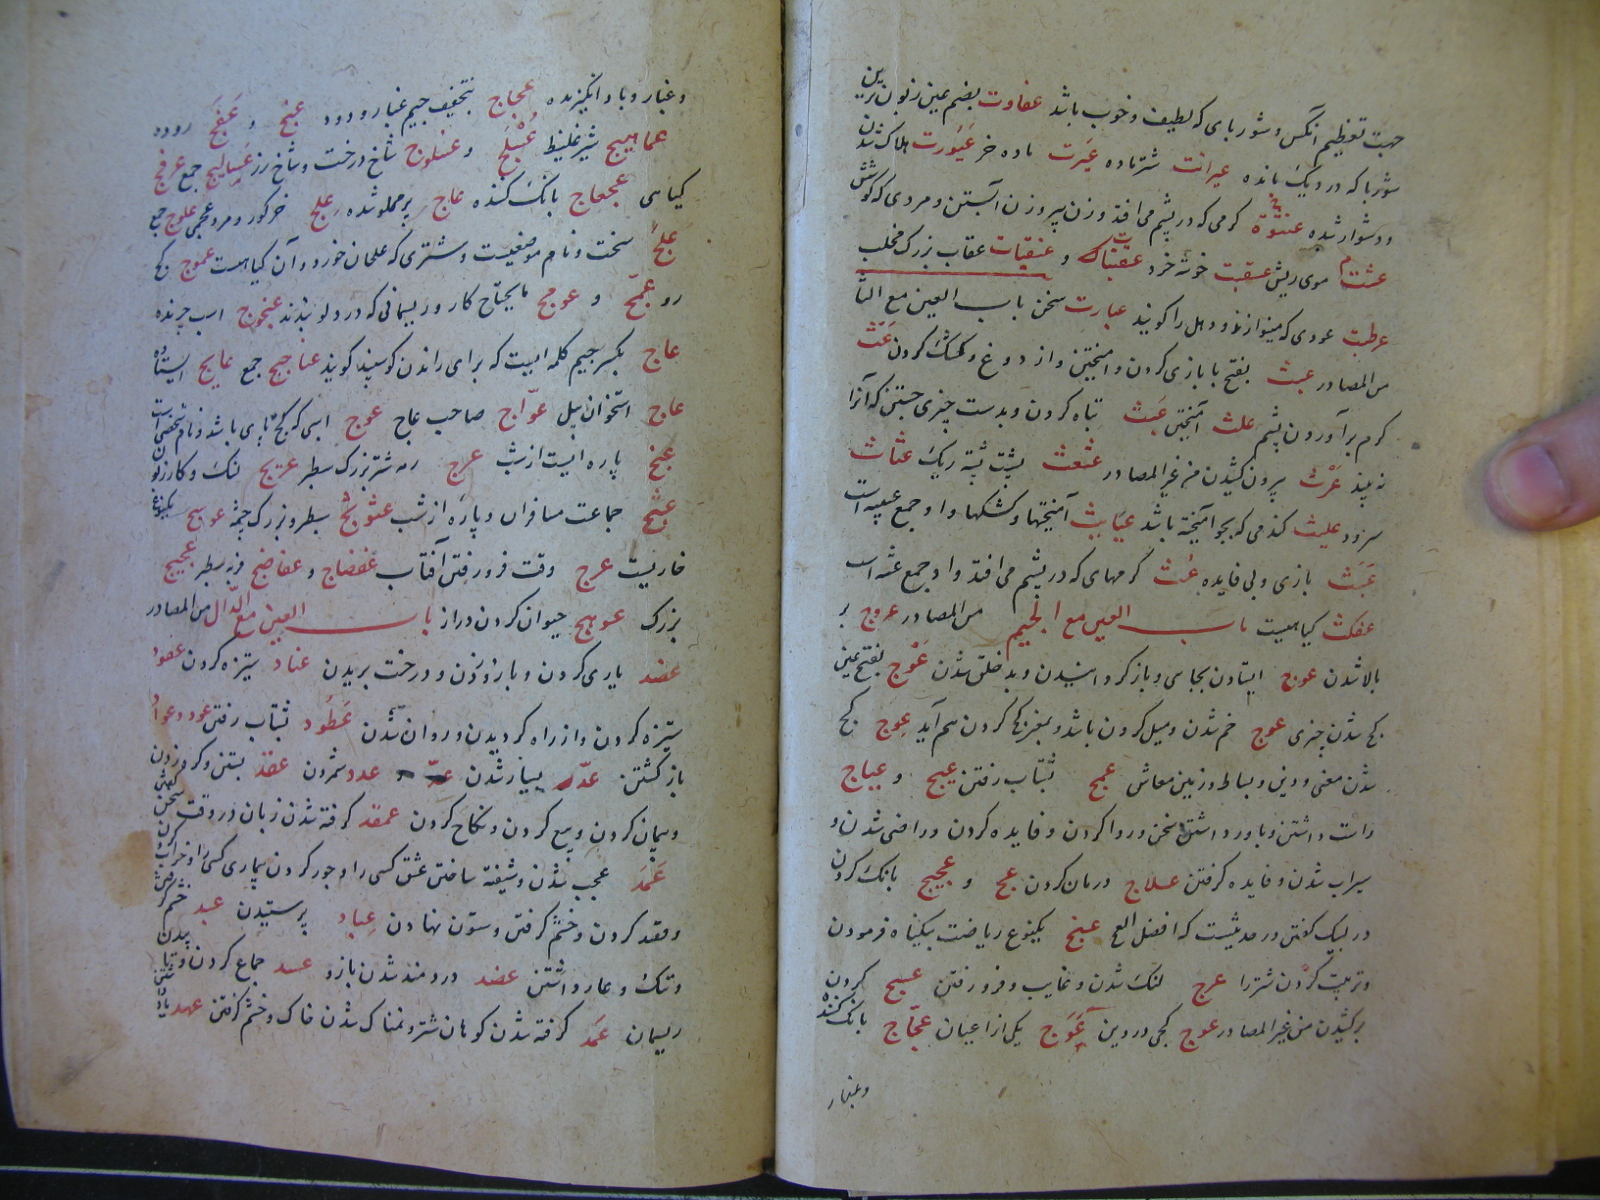 جهت تعظیم انکس و شوربای که لطیف و خوب باشد عفاوت بضم عین زبون ترین
شوربا که در دیک مانده عیرانت شتر ماده عیرت ماده خر عیورت هلاک شدن
و دشوار شده کرمی که در پشم می افتد و زن پیر و زن ابستن و مردی که کوشش
موی ریش خوشه خرد عقنبات و عنقبات عقاب بزرک مخلب
عرطبت عودی که مینوازند و دهل را کویند عبارت سخن باب العین مع الثا
من المصادر عبث بفتح با بازی کردن و امیختن و از دوغ و کشک کردن عث
کرم برآوردن پشم علث آمیختن عبث تباه کردن و بدست چیزی جستن که آنرا
نه بیند بیرون کشیدن من غیر المصادر عثعث پشت پشته ریک عثاث
سرود علیث کندمی که بجو امیخته باشد عبایث آمیختها و کشکها و او جمع عبیثه است
عبث بازی و بی فایده عث کرمهای که در پشم می افتد و او جمع عثه است
عفث کیاهیست باب العین مع الجیم من المصادر عروج بر
بالا شدن عوج ایستادن بجای و باز کردانیدن و بد خلق شدن عوج بفتح عین
کج شدن چیزی عوج خم شدن و میل کردن باشد و بمعنی کج کردن هم آید عوج کج
شدن معنی و دین و بساط و زمین معاش عمج بشتاب رفتن عیج و عیاج
راست داشتن و باور داشتن سخن و روا کردن و فایده کردن و راضی شدن و
سیراب شدن و فایده کرفتن علاج درمان کردن عج و عجیج بانک کردن
در لبیک کفتن در حدیثست که افضل الحج عنج یکنوع ریاضت بیکناه فرمودن
و تربیت کردن شتر را عرج لنک شدن و غایب و فرو رفتن عسیج کردن
برکشیدن من غیر المصادر عوج کجی در دین عوج یکی از اعیان عجاج بانک کننده
و غبار
و غبار و باد انکیزنده عجاج بتخفیف جیم غبار و دود و عفج روده
عماهیج شیر غلیظ عسلج و عسلوج شاخ درخت و شاخ رز عسالیج جمع عرفج
کیاهی عجعاج بانک کننده عاج پر مملو شده علج خر کور و مرد عجمی علوج جمع
علج سخت و نام موضعیست و شتری که علجان خورد و آن کیاهست عموج کج
رو عمج و عومج مایحتاج کار و ریسمانی که در دلو بندند عنجوج اسب چرنده
عاج بکسر جیم کلمه ایست که برای راندن کوسپند کویند عناجیج جمع عایج ایستاده
عاج استخوان پیل عواج صاحب عاج عوج اسی که کج پای باشد و نام شخصی است
پاره ایست از شب عرج رمه شتر بزرک سطبر عریج لنک و کارزنو
جماعت مسافران و پاره از شب عثوثج سطبر و بزرک جثه عوسج یکنوع
خاریست عرج وقت فرو رفتن آفتاب عفضاج و عفاضج فربه سطبر
بزرک عوهج حیوان کردن دراز باب العین مع الدال من المصادر
عضد یاری کردن و بازو زدن و درخت بریدن عناد ستیزه کردن عنود
ستیزه کردن و از راه کردیدن و روان شدن عطود بشتاب رفتن عود و عواد
باز کشتن عد بسیار شدن عد عدد شمردن عقد بستن و کره زدن
و پیمان کردن و بیع کردن و نکاح کردن عقد کرفته شدن زبان در وقت سخن کفتن
عمد عجب شدن و شیفته ساختن عشق کسی را و جور کردن بیماری کسی را و خراب کردن
و قصد کردن و خشم کرفتن و ستون نهادن عباد پرستیدن عبد خشم کرفتن
و ننک و عار داشتن عضد دردمند شدن بازو عسد جماع کردن و تابیدن
ریسمان عمد کرفته شدن کوهان شتر و نمناک شدن خاک و خشم کرفتن عهد